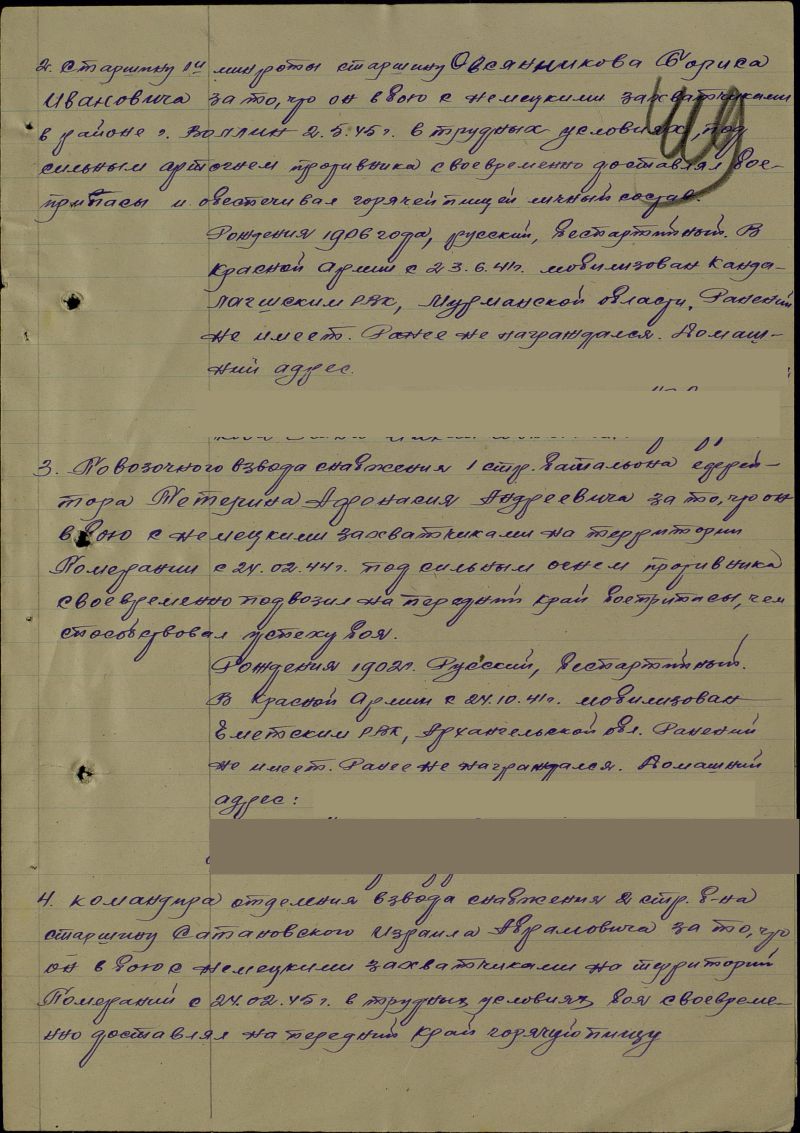 2. Старшину 1й минроты старшину Овсянникова Бориса
Ивановича за то, что он в бою с немецкими захватчиками
в районе г. Воллин 2.5.45г. в трудных условиях, под
сильным артогнем противника своевременно доставлял бое-
припасы и обеспечивал горячей пищей личный состав.
Рождения 1906 года, русский, беспартийный. В
Красной Армии с 23.6.41г. мобилизован Канда-
лакшским РВК, Мурманской области. Ранений
не имеет. Ранее не награждался. Домаш-
ний адрес.
3. Повозочного взвода снабжения 1 стр. батальона ефрей-
тора Петерина Афонасия Андреевича за то, что он
в бою с немецкими захватчиками на территории
Померании с 24.02.44г. под сильным огнем противника
своевременно подвозил на передний край боеприпасы, чем
способствовал успеху боя.
Рождения 1902г. Русский, беспартийный.
В Красной Армии с 24.10.41г. мобилизован
Еметским РВК, Архангельской обл. Ранений
не имеет. Ранее не награждался. Домашний
адрес:
4. Командира отделения взвода снабжения 2 стр. б-на
старшину Сатановского Израила Абрамовича за то, что
он в бою с немецкими захватчиками на территории
Померании с 24.02.45г. в трудных условиях боя своевреме-
нно доставлял на передний край горячую пищу